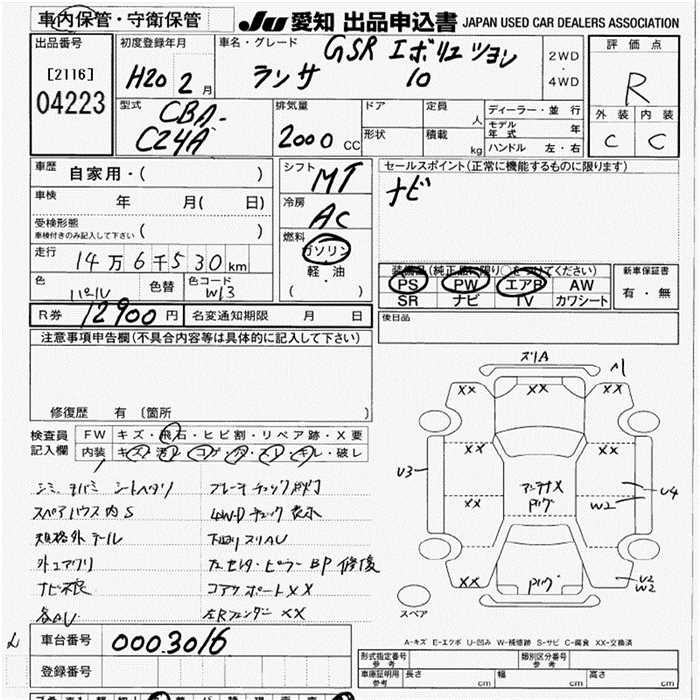 車内保管・守衛保管
JU 愛知 出品申込書 JAPAN USED CAR DEALERS ASSOCIATION
出品番号 初度登録年月 車名・グレード 評価点
GSR エボリュツヨン
[2116] H20 2月 ランサ 10 2WD・4WD R
04223
型式 CBA- 排気量 ドア 定員 人 ディーラー・並行 外装 内装
CZ4A 2000 CC 形状 積載 kg モデル年式 年 C C
ハンドル 左・右
車歴 自家用・( ) シフト MT セールスポイント(正常に機能するものに限ります)
車検 年 月( 日) 冷房 AC ナビ
受検形態
車検付きのみ記入して下さい ( )
走行 14万6千530km 燃料 ガソリン
軽・油
( )
装備品(純正品に限り○をつけてください) 新車保証書
PS PW エアB AW 有・無
SR ナビ TV カワシート
色 色替 色コード W13
R券 12900円 名変通知期限 月 日 後日品
注意事項申告欄(不具合内容等は具体的に記入して下さい)
修復歴 有 (箇所 )
検査員 FW キズ・飛石・ヒビ割・リペア跡・X要
記入欄 内装 キズ・汚レ・コゲ・穴・スレ・キレ・破レ
シミ ヨバミ シートヘタリ ブレーキチェック点灯
スペアハウス内S 4WDチェック表示
規格外テール 下回りスリAU
外エアクリ 左センタ・ピラーBP修復
ナビ不良 コアサポートXX
各AU 左Rフェンダー XX
スリA
XX XX
XX XX
U3 アンテナX U4
Pリグ
XX W2
XX Pリグ U2
W2
スペア
A-キズ E-エクボ U-凹み W-補修跡 S-サビ C-腐食 XX-交換済
車台番号 0003016
登録番号
形式指定番号 参考 類別区分番号 参考
車庫証明用 参考 長さ cm 幅 cm 高さ cm